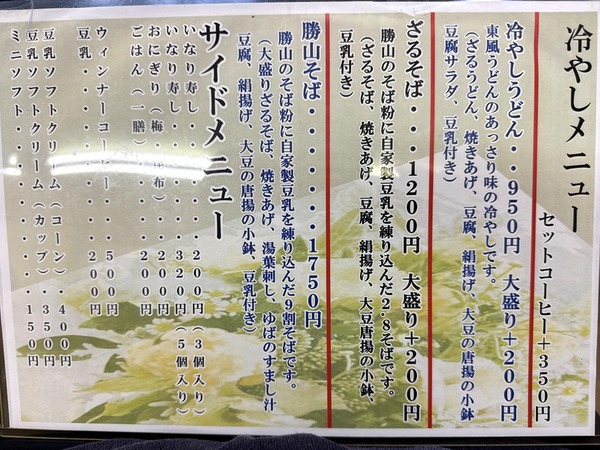 冷やしメニュー
セットコーヒー＋350円
冷やしうどん・・950円　大盛り＋200円
東風うどんのあっさり味の冷やしです。
（ざるうどん、焼きあげ、豆腐、絹揚げ、大豆の唐揚の小鉢
豆腐サラダ、豆乳付き）
ざるそば・・・1200円　大盛り＋200円
勝山のそば粉に自家製豆乳を練り込んだ2.8そばです。
（ざるそば、焼きあげ、豆腐、絹揚げ、大豆唐揚の小鉢、
豆乳付き）
勝山そば・・・・・・・1750円
勝山のそば粉に自家製豆乳を練り込んだ9割そばです。
（大盛りざるそば、焼きあげ、湯葉刺し、ゆばのすまし汁
豆腐、絹揚げ、大豆の唐揚の小鉢、豆乳付き）
サイドメニュー
いなり寿し・・・・・・200円（3個入り）
いなり寿し・・・・・・320円（5個入り）
おにぎり（梅・昆布）・・200円
ごはん（一膳）・・・・200円
ウィンナーコーヒー・・・500円
豆乳・・・・・・・・・200円
豆乳ソフトクリーム（コーン）・400円
豆乳ソフトクリーム（カップ）・350円
ミニソフト・・・・・・・・150円